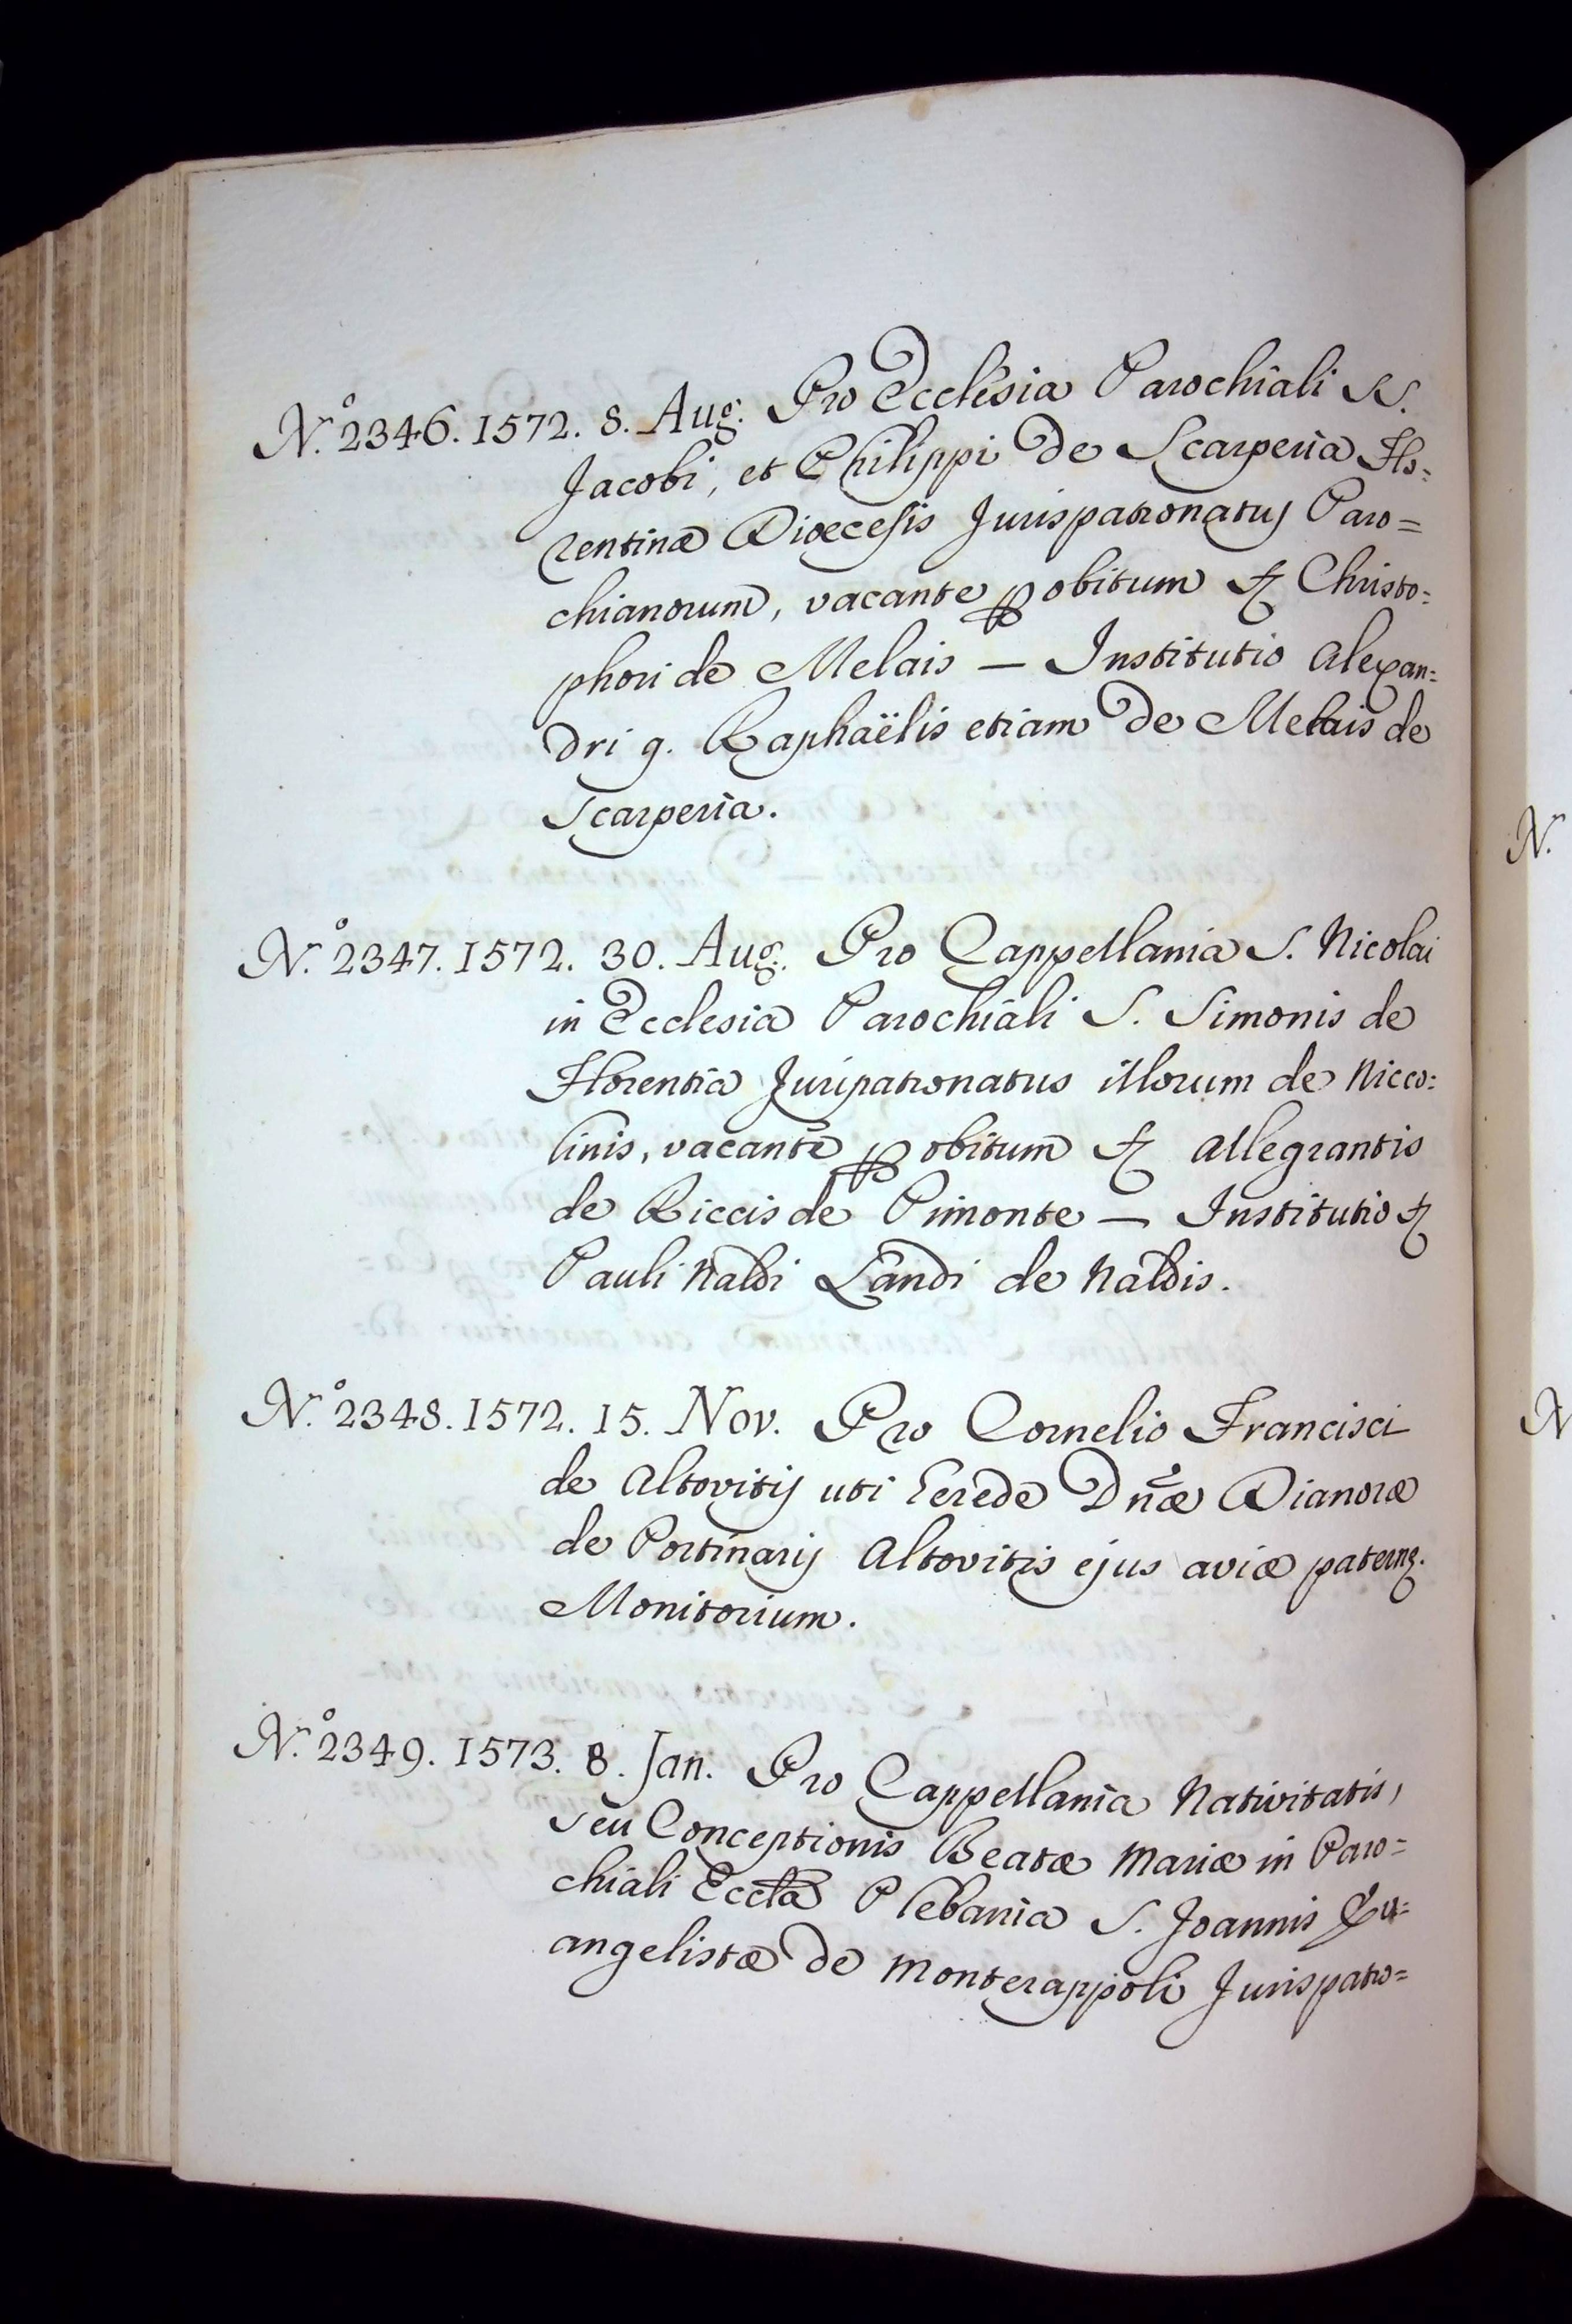 N.º 2346. 1572. 8. Aug. Pro Ecclesia Parochiali SS.
Jacobi, et Philippi de Scarperia Flo=
rentinæ Diœcesis Jurispatronatus Paro=
chianorum, vacante p obitum Christo=
phori de Melais — Institutio Alexan=
dri q. Raphaëlis etiam de Melais de
Scarperia.
N.º 2347. 1572. 30. Aug. Pro Cappellania S. Nicolai
in Ecclesia Parochiali S. Simonis de
Florentia Juripatronatus illorum de Nicco=
linis, vacante p obitum Allegrantis
de Riccis de Pimonte — Institutio
Pauli Naldi Landi de Naldis.
N.º 2348. 1572. 15. Nov. Pro Cornelio Francisci
de Altovitij uti herede Dnæ Dianoræ
de Portinarij Altovitis ejus aviæ paternę.
Monitorium.
N.º 2349. 1573. 8. Jan. Pro Cappellania Nativitatis,
seu Conceptionis Beatæ Mariæ in Paro=
chiali Eccla Plebania S. Joannis Eu=
angelistæ de Monterappoli Jurispatro=
N.
N